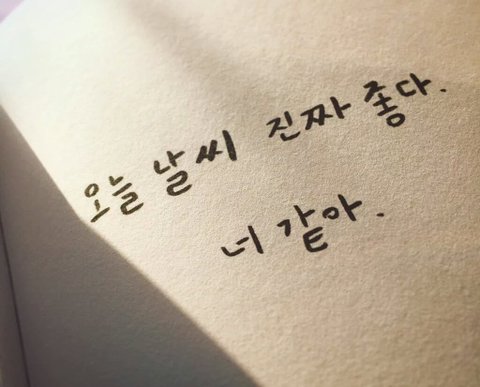 오늘 날씨 진짜 좋다.
너 같아.